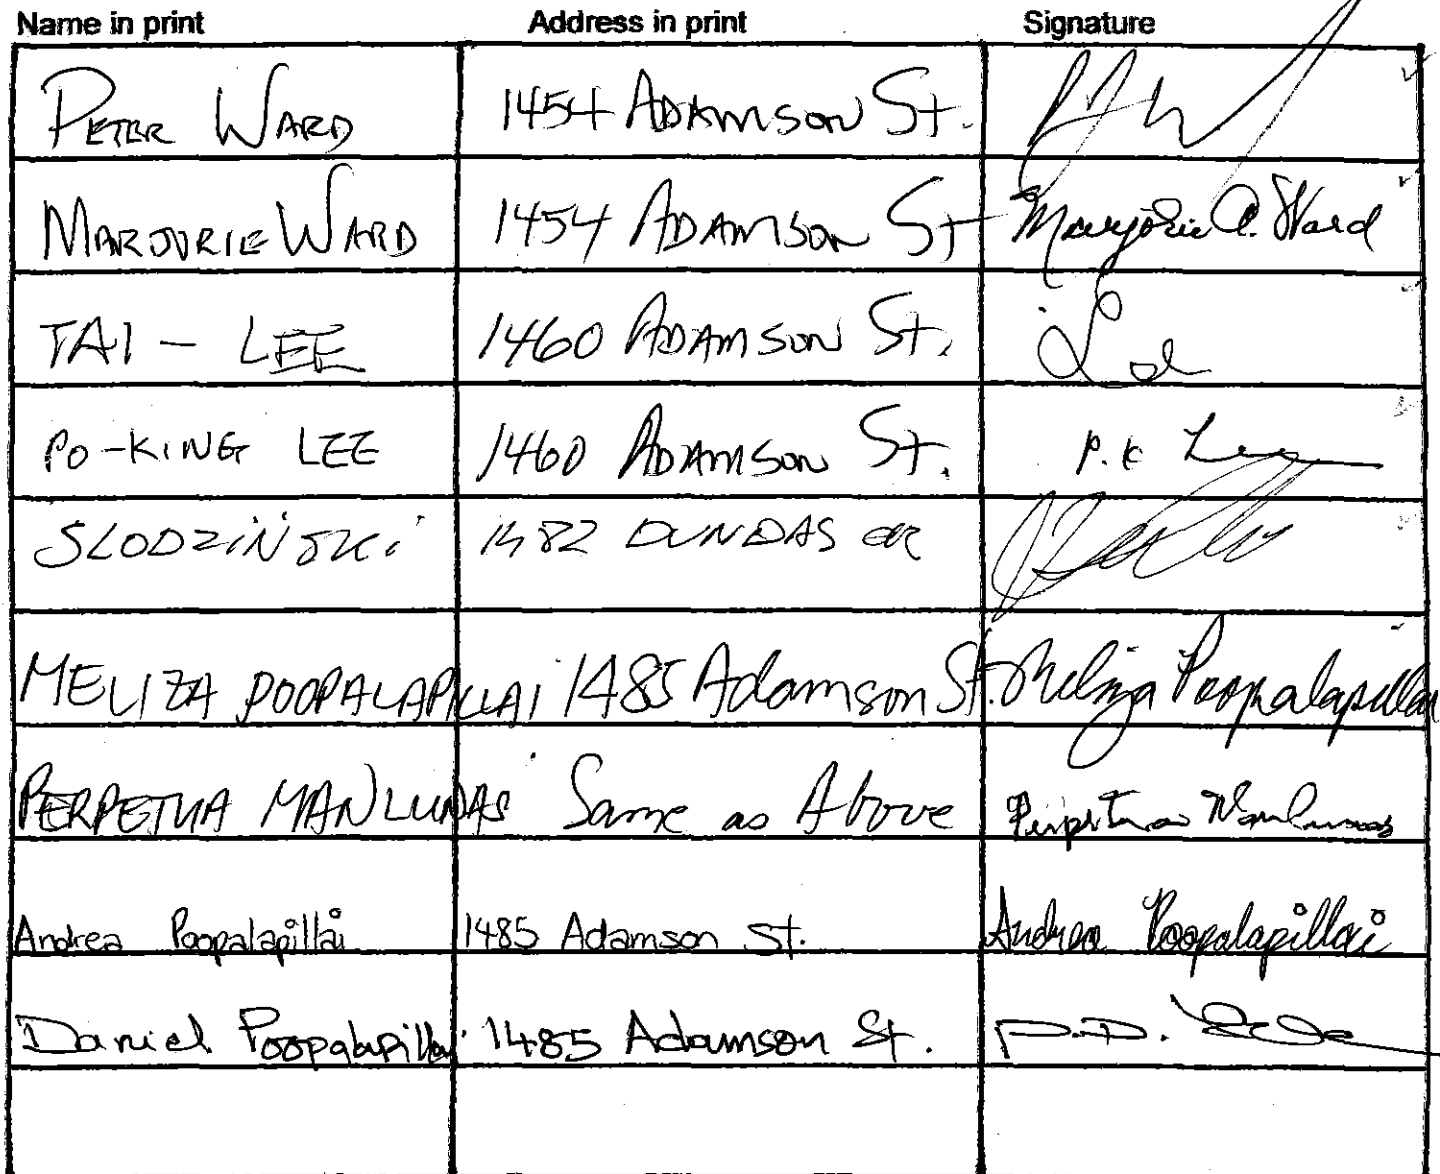 Name in print Address in print Signature
PETER WARD 1454 ADAMSON St.
MARJORIE WARD 1454 ADAMSON St Marjorie A. Ward
TAI - LEE 1460 ADAMSON St. Lee
PO-KING LEE 1460 ADAMSON St. P.K Lee
SLODZiNSKi 1482 DUNDAS CR
MELIZA POOPALAPILLAI 1485 Adamson St. Meliza Poopalapillai
PERPETUA MANLUNAS Same as Above Perpetua Manlunas
Andrea Poopalapillai 1485 Adamson St. Andrea Poopalapillai
Daniel Poopalapillai 1485 Adamson St. P.D.